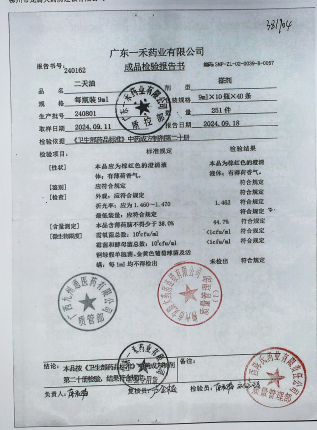 331/04
广东一禾药业有限公司
成品检验报告书
报告书号: 240162 编码:SMP-ZL-02-0039-B-0057
品 名 二天油 剂型 搽剂
规 格 每瓶装9ml 包装规格 9ml×10瓶×40条
生产批号 240801 数量 251件
取样日期 2024.09.11 报告日期 2024.09.18
检验依据 《卫生部药品标准》中药成方制剂第二十册
检验项目: 标准规定 检验结果
[性状] 本品应为棕红色的澄清液体;有薄荷香气。 本品为棕红色的澄清液体;有薄荷香气。
[鉴别] 应符合规定 符合规定
[检查] 外观:应符合规定 符合规定
折光率:应为1.460~1.470 1.463 符合规定
最低装量:应符合规定 符合规定
[含量测定] 本品含薄荷脑不得少于38.0% 44.7% 符合规定
[微生物限度] 需氧菌总数:10²cfu/ml <1cfu/ml 符合规定
霉菌和酵母菌总数:10¹cfu/ml <1cfu/ml 符合规定
铜绿假单胞菌、金黄色葡萄球菌
每1ml均不得检出 未检出 符合规定
广西九州通医药有限公司
质管部
质量管理部
广东一禾药业有限公司
质控
结论: 本品按《卫生部药品标准》中药成方制剂第二十册检验,结果符合规定。
备注:
负责人: 复核员: 检验员:
质量管理部